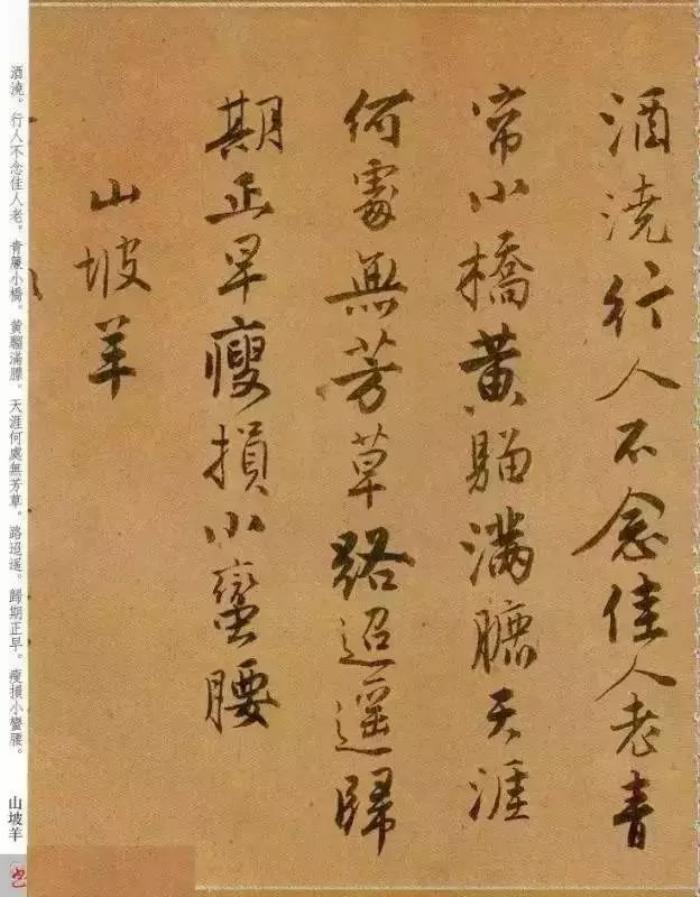 酒澆行人不念佳人老青
帘小橋黄騮滿臕天涯
何處無芳草路迢遥歸
期正早瘦損小蠻腰
山坡羊
酒澆。行人不念佳人老。青簾小橋。黄騮滿臕。天涯何處無芳草。路迢遥。歸期正早。瘦損小蠻腰。　山坡羊